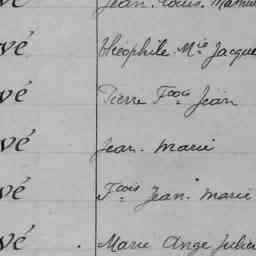 vé Jean. Louis. Mathu
vé théophile. Mie Jacque
vé Pierre Fcois Jean
vé Jean. Marie
vé Fcois Jean. Marie
vé Marie Ange Julien